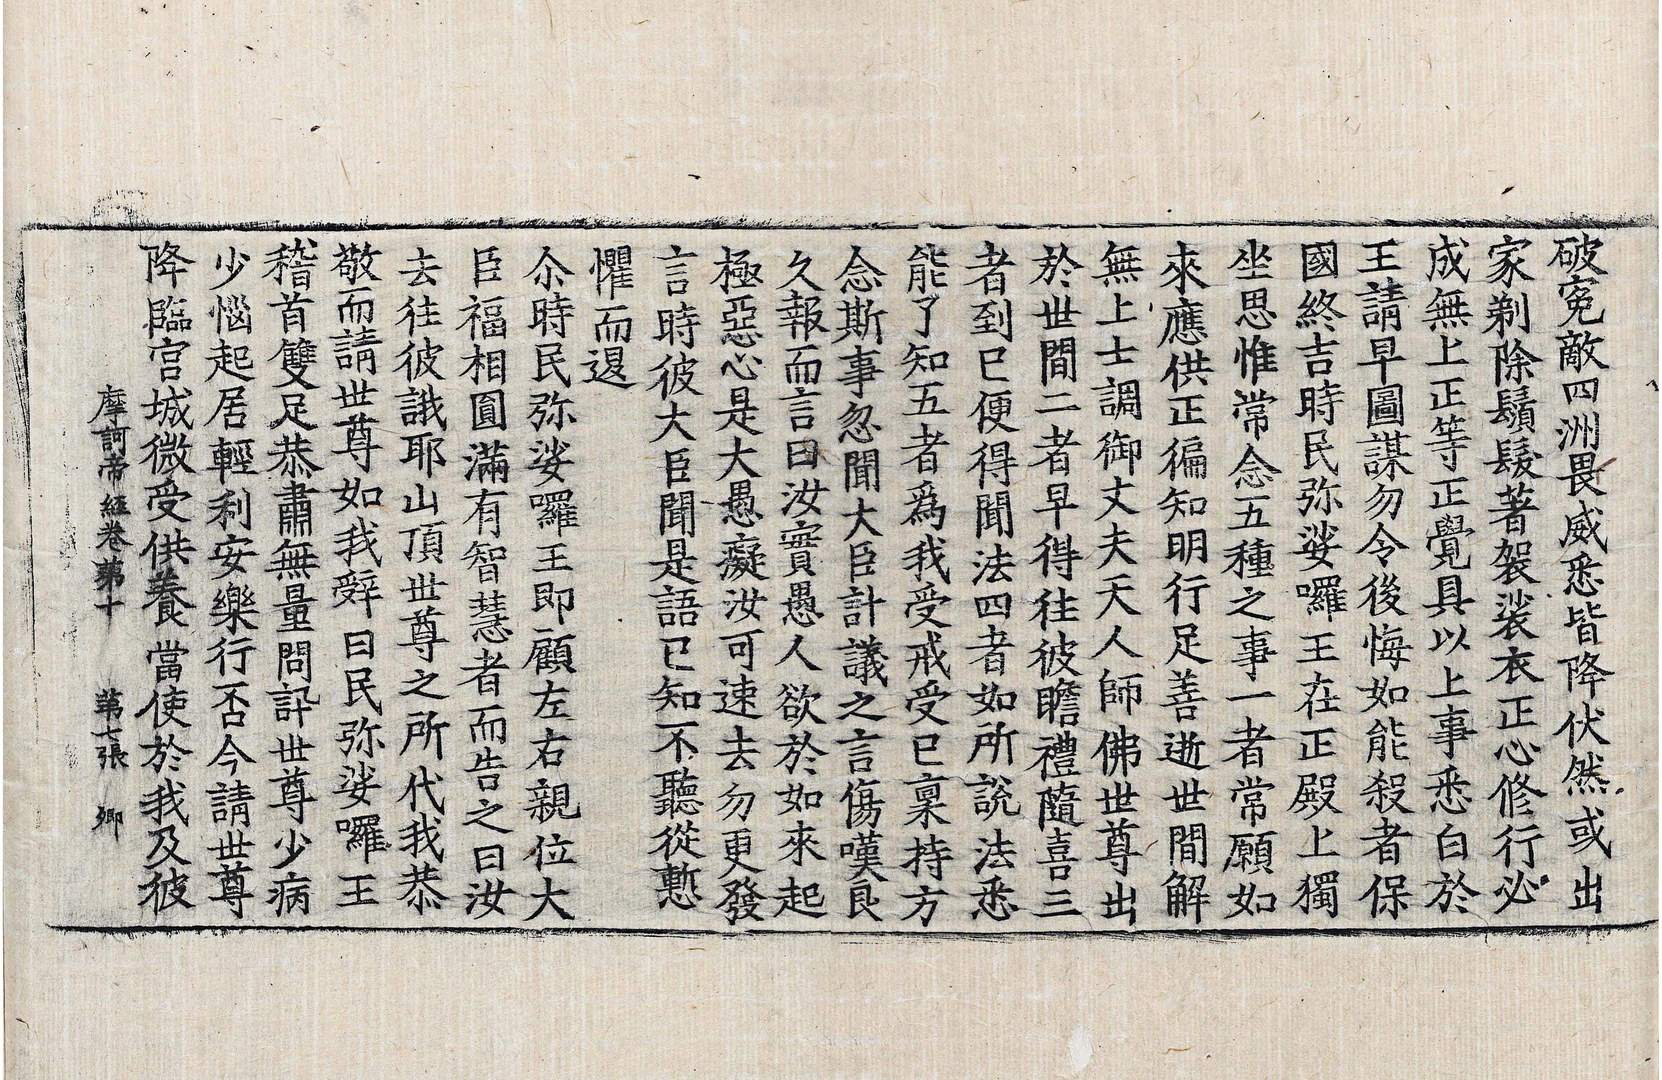 破冤敵四洲畏威悉皆降伏然或出
家剃除鬚髮著袈裟衣正心修行必
成無上正等正覺具以上事悉白於
王請早圖謀勿令後悔如能殺者保
國終吉時民弥娑囉王在正殿上獨
坐思惟常念五種之事一者常願如
來應供正徧知明行足善逝世間解
無上士調御丈夫天人師佛世尊出
於世間二者早得往彼瞻禮隨喜三
者到已便得聞法四者如所說法悉
能了知五者爲我受戒受已稟持方
念斯事忽聞大臣計議之言傷嘆良
久報而言曰汝實愚人欲於如來起
極惡心是大愚癡汝可速去勿更發
言時彼大臣聞是語已知不聽從慙
懼而退
尒時民弥娑囉王即顧左右親位大
臣福相圓滿有智慧者而告之曰汝
去往彼誐耶山頂世尊之所代我恭
敬而請世尊如我辝曰民弥娑囉王
稽首雙足恭肅無量問訊世尊少病
少惱起居輕利安樂行否今請世尊
降臨宫城微受供養當使於我及彼
摩訶帝經卷苐十 苐七張 卿